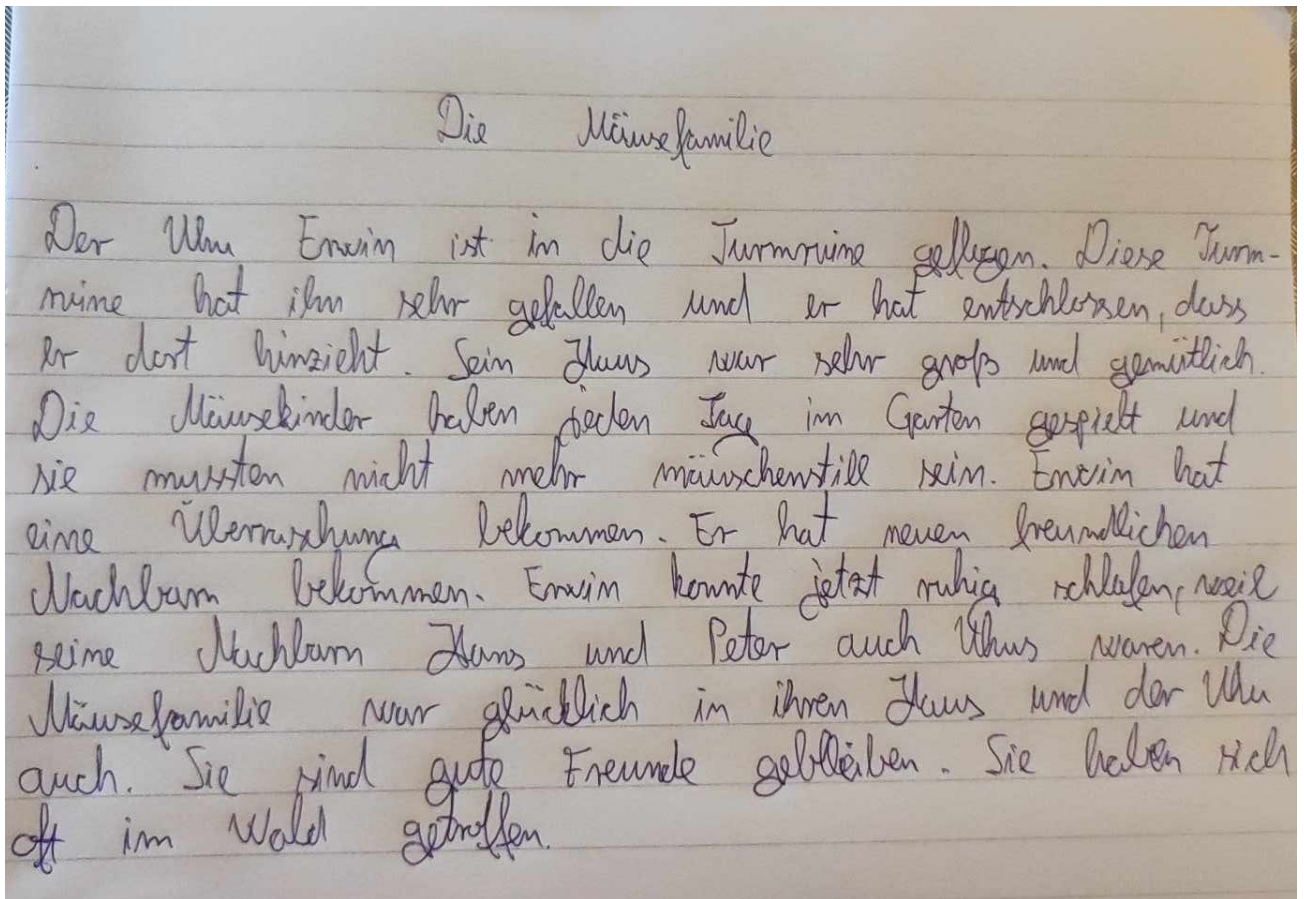 Die Mäusefamilie
Der Uhu Erwin ist in die Turmruine geflogen. Diese Turm-
ruine hat ihm sehr gefallen und er hat entschlossen, dass
er dort hinzieht. Sein Haus war sehr groß und gemütlich.
Die Mäusekinder haben jeden Tag im Garten gespielt und
sie mussten nicht mehr mäuschenstill sein. Erwin hat
eine Überraschung bekommen. Er hat neuen freundlichen
Nachbarn bekommen. Erwin konnte jetzt ruhig schlafen, weil
seine Nachbarn Hans und Peter auch Uhus waren. Die
Mäusefamilie war glücklich in ihren Haus und der Uhu
auch. Sie sind gute Freunde gebleiben. Sie haben sich
oft im Wald getroffen.